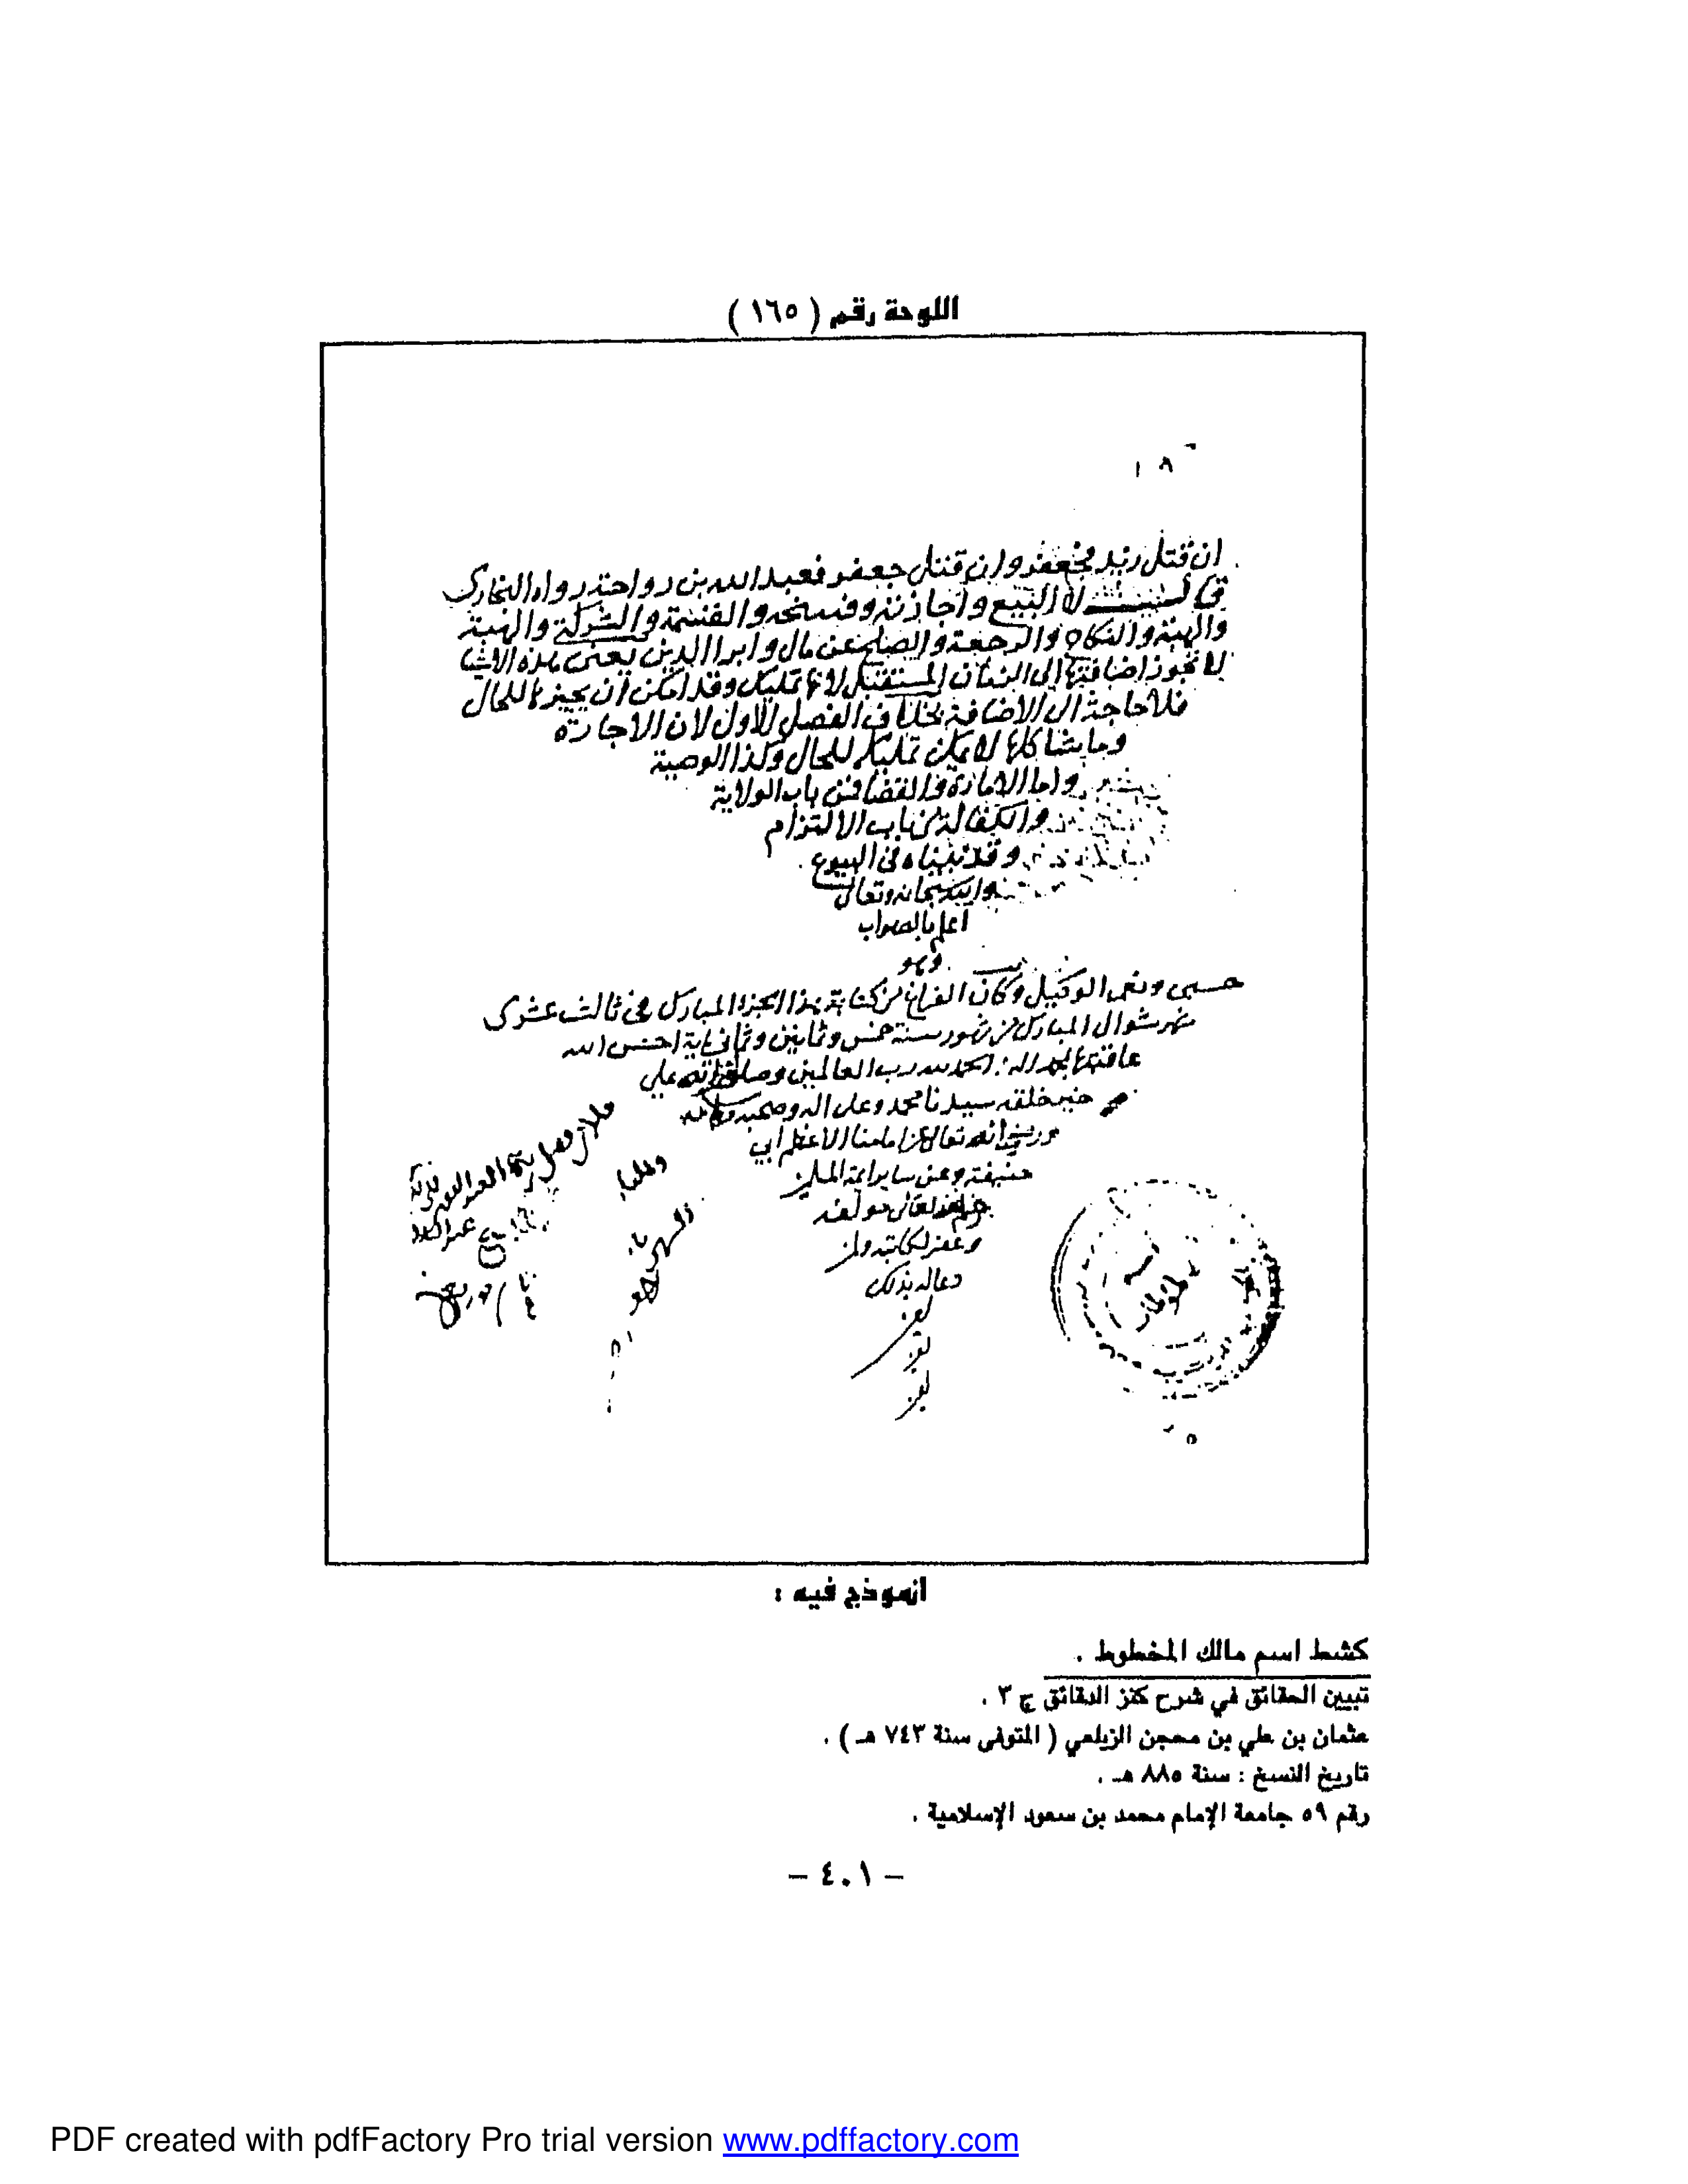 اللوحة رقم ( ١٦٥ )
ان قتل زيد فجعفر وان قتل جعفر فعبد الله بن رواحة رواه البخاري
قال لا البيع واجازته وفسخه والقسمة والشركة والهبة
والهبة والنكاح والرجعة والصلح عن مال وابرا الدين يعني هذه الاشيا
لا تجوز اضافتها الى الزمان المستقبل لانها تمليك وقد امكن ان يجيزها للحال
فلا حاجة الى الاضافة بخلاف الفصل الاول لان الاجارة
وما شاكلها لا يمكن تمليكه للحال وكذا الوصية
واما الامارة والقضا فمن باب الولاية
والكفالة من باب الالتزام
وقد بيناه في البيوع
والله سبحانه وتعالى
اعلم بالصواب
وهو
حسبي ونعم الوكيل وكان الفراغ من كتابة هذا الجزء المبارك في ثالث عشري
شهر شوال المبارك من شهور سنة خمس وثمانين وثماني ماية احسن الله
عاقبتها بمحمد واله الحمد لله رب العالمين وصلى الله على
خير خلقه سيدنا محمد وعلى اله وصحبه
ورضي الله تعالى عن امامنا الاعظم ابي
حنيفة وعن ساير ايمة المسلمين
لمؤلفه
وغفر لكاتبه ولمن
دعا له بذلك
انموذج فيه :
كشط اسم مالك المخطوط .
تبيين الحقائق في شرح كنز الدقائق ج ٣ .
عثمان بن علي بن محجن الزيلعي ( المتوفى سنة ٧٤٣ هـ ) .
تاريخ النسخ : سنة ٨٨٥ هـ .
رقم ٥٩ جامعة الإمام محمد بن سعود الإسلامية .
– ٤٠١ –
PDF created with pdfFactory Pro trial version www.pdffactory.com